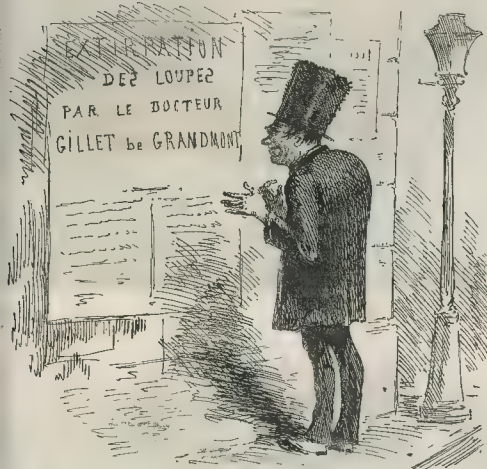 EXTIRPATION
DES LOUPES
PAR LE DOCTEUR
GILLET de GRANDMONT